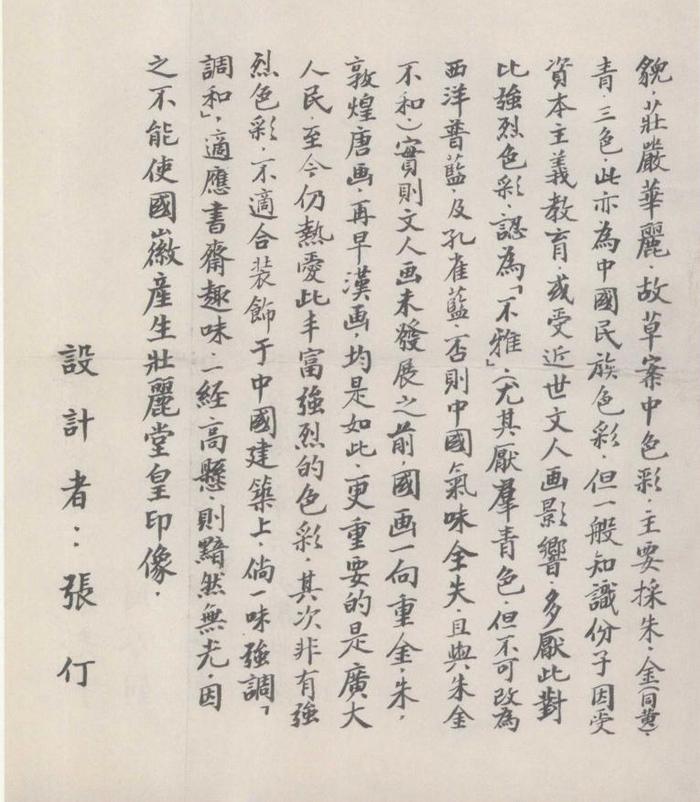 貌，莊嚴華麗，故草案中色彩，主要採朱，金（同黃）
青，三色，此亦為中國民族色彩，但一般知識份子因受
資本主義教育，或受近世文人画影響，多厭此對
比強烈色彩，認為「不雅」，（尤其厭羣青色，但不可改為
西洋普藍，及孔雀藍，否則中國氣味全失，且與朱金
不和，）實則文人画未發展之前，國画一向重金，朱，
敦煌唐画，再早漢画，均是如此，更重要的是廣大
人民，至今仍熱愛此丰富強烈的色彩，其次非有強
烈色彩，不適合装飾于中國建築上，倘一味強調「
調和」，適應書齋趣味，一經高懸，則黯然無光，因
之不能使國徽產生壯麗堂皇印像．
設計者：張仃